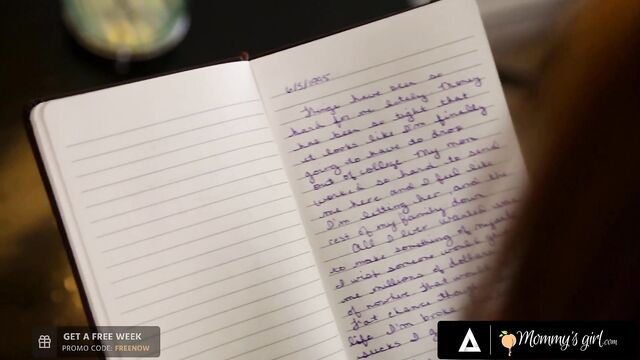 6/5/1995
Things have been so
hard for me lately. Money
has been so tight that
it looks like I'm finally
going to have to drop
out of college. My mom
worked so hard to send
me here and I feel like
I'm letting her and the
rest of my family down
All I ever wanted was
to make something of myself
I wish someone would give
me millions of dollars
of nowhere that would
Fat chance though
life I'm broke
sucks I
GET A FREE WEEK
PROMO CODE: FREENOW
Mommy's girl.com